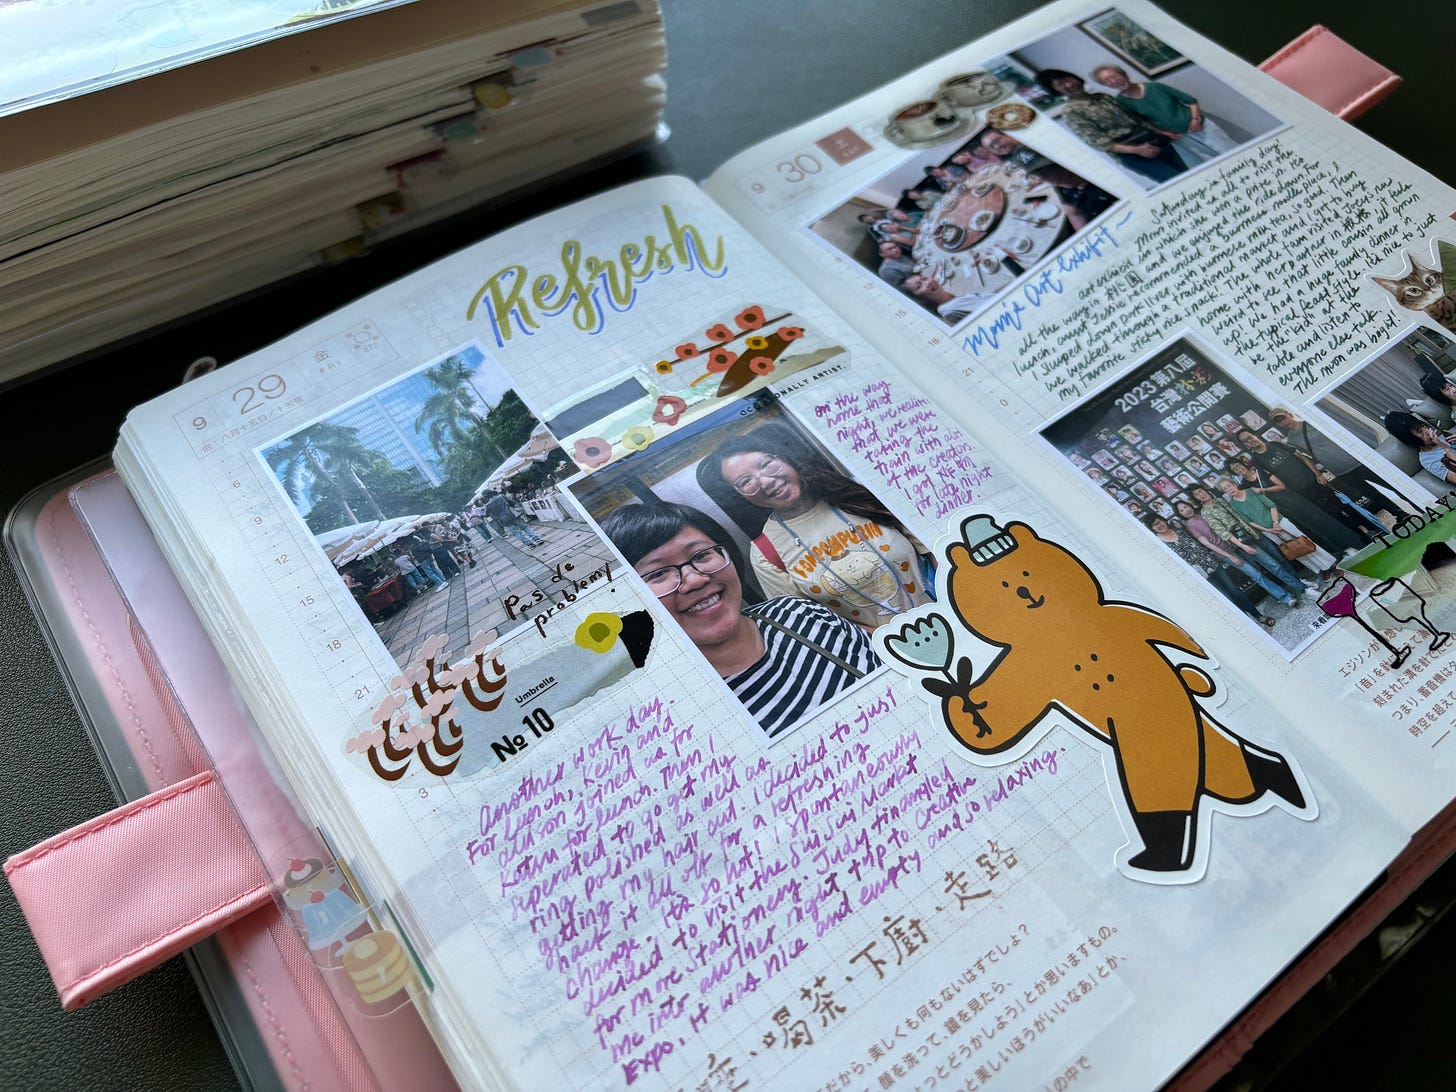 Refresh
9 29 金 FRI 272
旧:八月十五日／十五夜
6
9
12
15
18
21
3
OCCASIONALLY ARTIST
POMPOMPURIN
pas de
problem!
Umbrella
№ 10
on the way
home that
night, we realized
that we were
taking the
train with all
of the creators
I got
for late night
dinner.
Another work day.
For lunch, Kevin and
Allison joined us for
Katsu for lunch. Then I
seperated to get my
ring polished as well as
getting my hair cut. I decided to just
hack it all off for a refreshing
change. its so hot! I spontaneously
decided to visit the Suisai Market
for more stationery. Judy finangled
me into another night trip to Creative
Expo. it was nice and empty and so relaxing.
、喝茶、下廚、走路
だから、美しくも何もないはずでしょ？
顔を洗って、鏡を見たら、
ょっとどうかしよう」とか思いますもの。
と美しいほうがいいなあ」とか、
の中で
9 30 土 SAT
12
15
18
21
0
Mom's Art Exhibit~
Saturday is family day!
Mom invited us all to visit the
art exhibit in which she won a prize in. its
all the way in and we enjoyed the ride down. For
lunch, aunt Jessie recommended a burmese noodle place, I
slurped down pork liver with burmese milk tea, so good. Then
we walked through a traditional market and I got to buy
my favorite sticky rice snack. The whole fam visited Joey's new
home with her partner in it feels
weird to see that little cousin all grown
up! We had a huge family dinner in
the typical feast style. its nice to just
be the "kids" at the
table and listen to
everyone else talk.
The moon was bright!
2023 第八屆
台灣水彩
藝術公開賽
TODAY
エジソンが
「音」を針
刻まれた溝を針で
つまり、蓄音機は
時空を超え